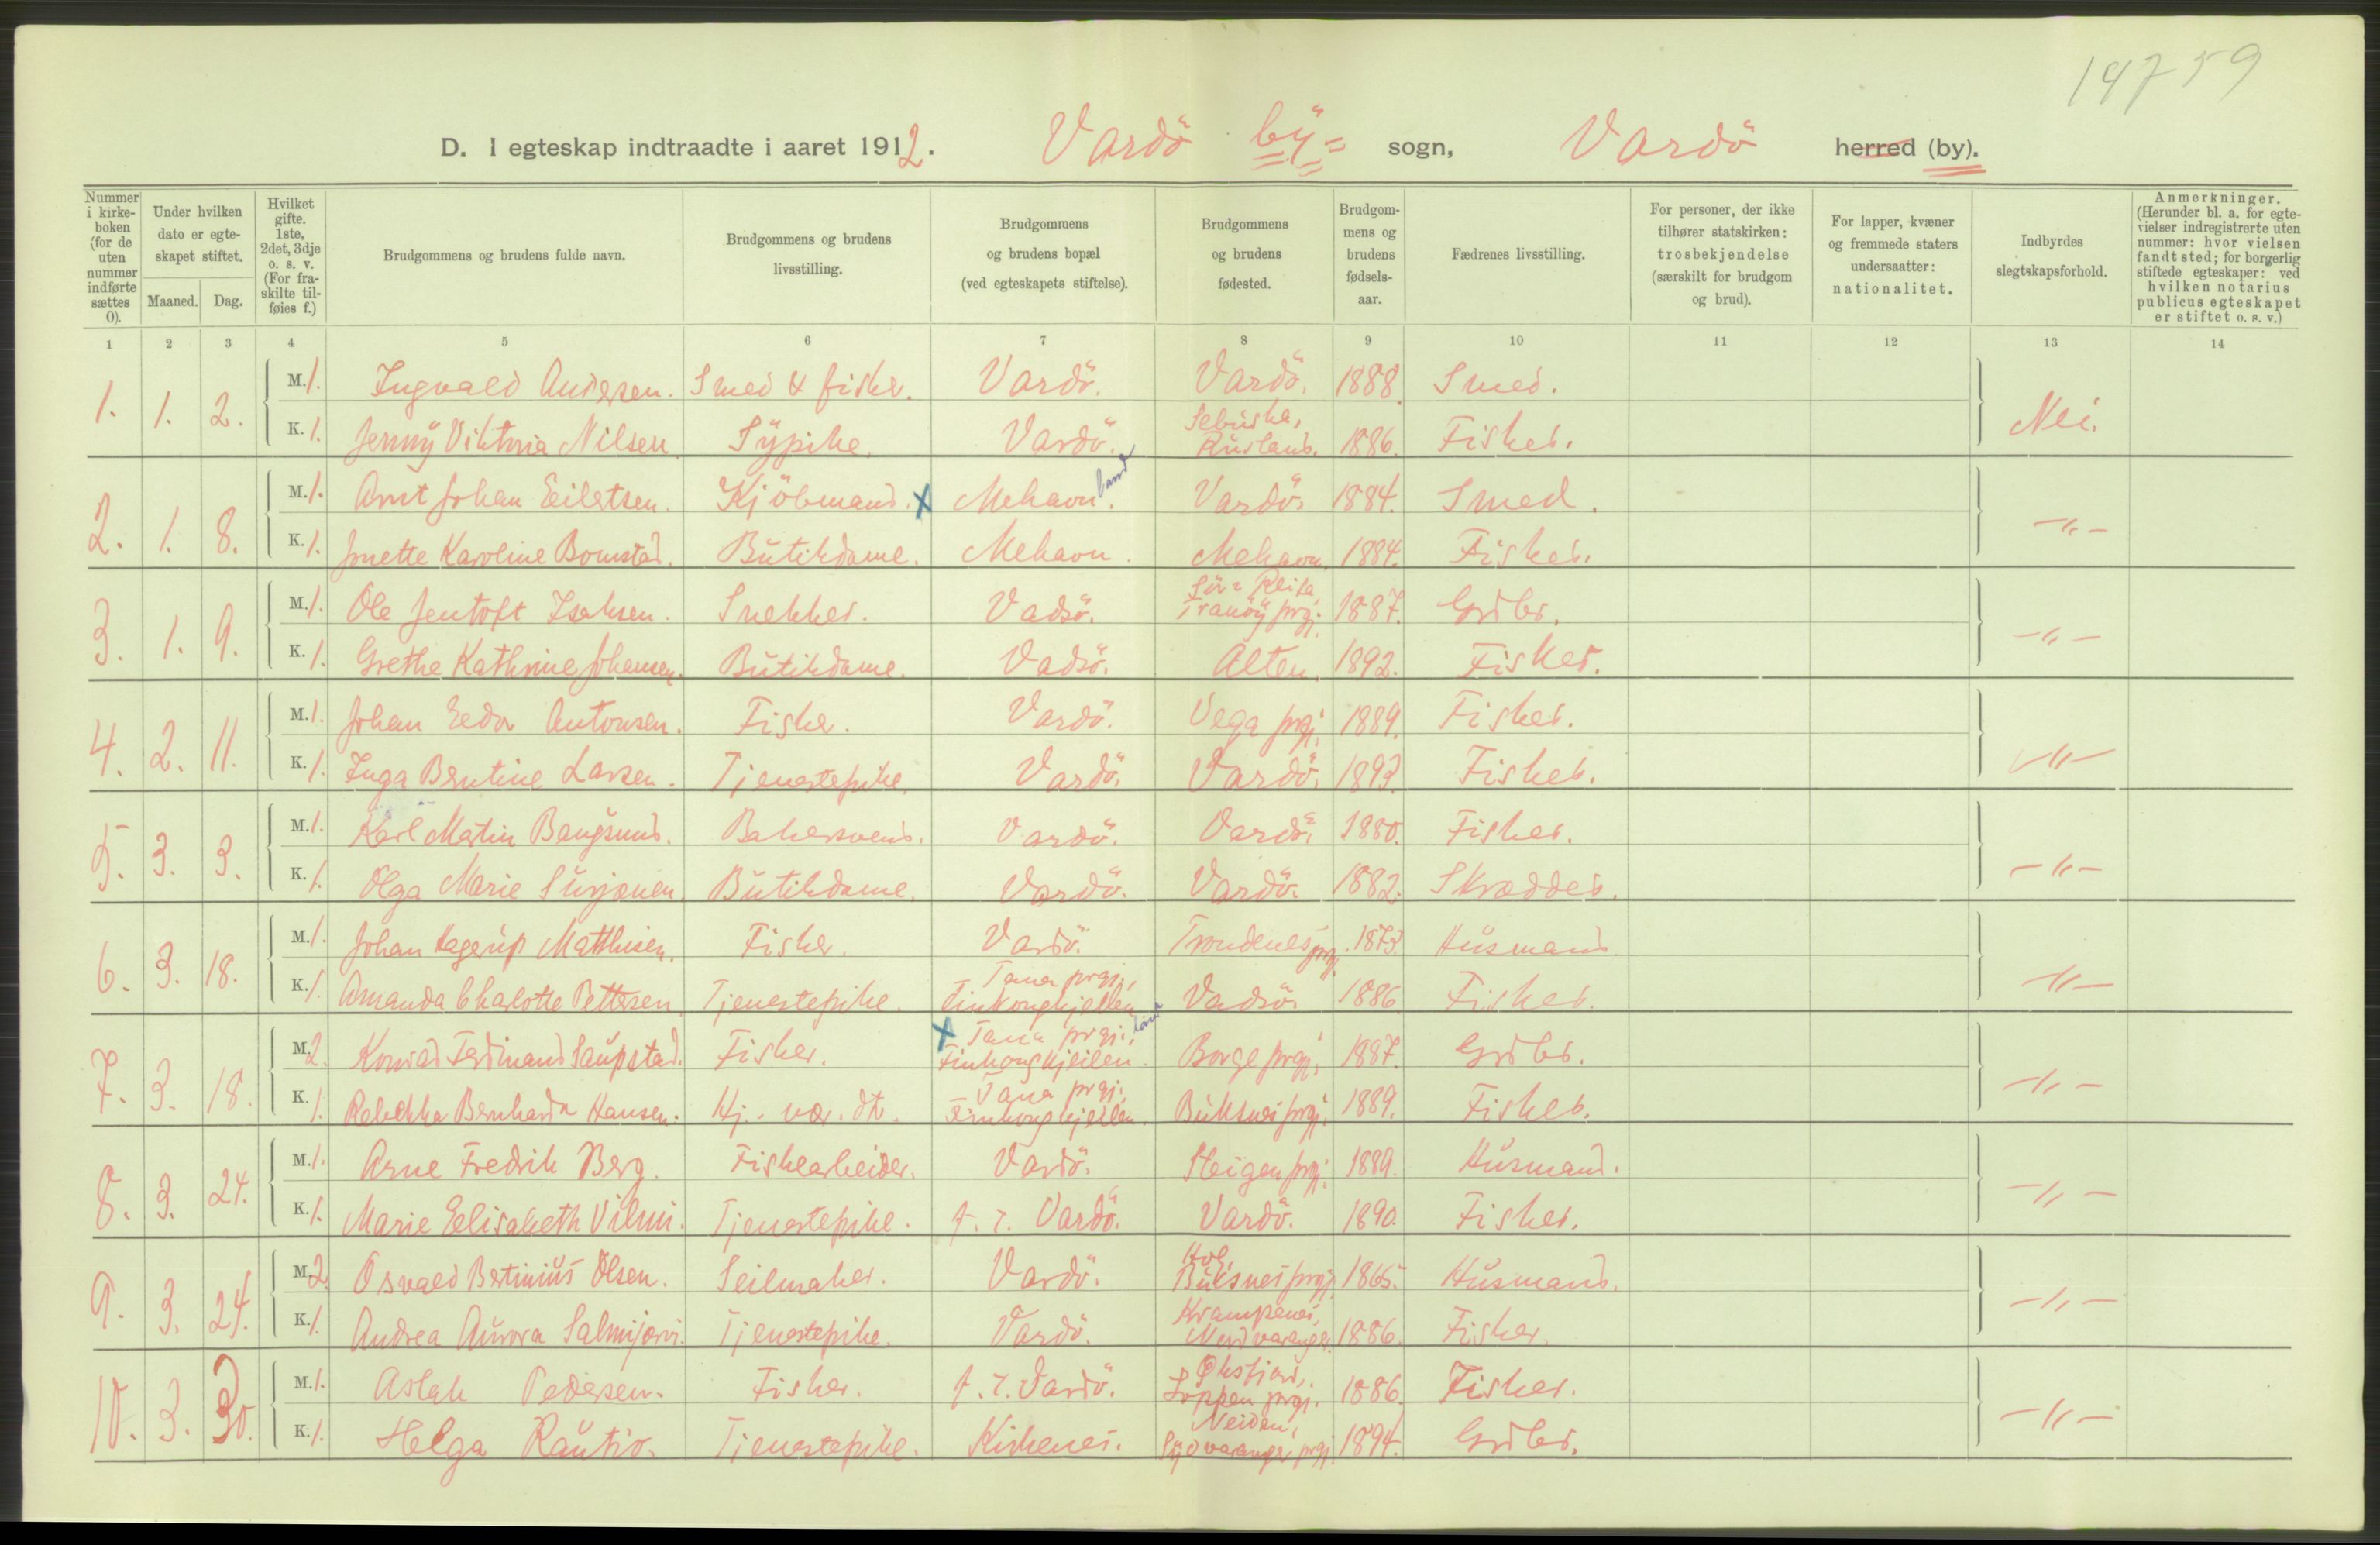 14759
D. I egteskap indtraadte i aaret 1912. Vardö by= sogn, Vardö herred (by).
Nummer i kirke-boken (for de uten nummer indførte sættes 0).
Under hvilken dato er egte-skapet stiftet.
Maaned. Dag.
Hvilket gifte. 1ste, 2det, 3dje o. s. v. (For fra-skilte til-føies f.)
Brudgommens og brudens fulde navn.
Brudgommens og brudens livsstilling.
Brudgommens og brudens bopæl (ved egteskapets stiftelse).
Brudgommens og brudens fødested.
Brudgom-mens og brudens fødsels-aar.
Fædrenes livsstilling.
For personer, der ikke tilhører statskirken: trosbekjendelse (særskilt for brudgom og brud).
For lapper, kvæner og fremmede staters undersaatter: nationalitet.
Indbyrdes slegtskapsforhold.
Anmerkninger. (Herunder bl. a. for egte-vielser indregistrerte uten nummer: hvor vielsen fandt sted; for borgerlig stiftede egteskaper: ved hvilken notarius publicus egteskapet er stiftet o. s. v.)
1 2 3 4 5 6 7 8 9 10 11 12 13 14
1. 1. 2. M. 1. Ingvald Andersen. Smed & fisker. Vardö. Vardö. 1888. Smed. Nei.
K. 1. Jenny Viktoria Nilsen Sypike. Vardö. Rusland. 1886. Fisker.
2. 1. 8. M. 1. Arnt Johan Eilertsen. Kjöbmand. x Mehavn. Vardö. 1884. Smed. -"-
K. 1. Jnette Karoline Bomstad. Butikdame. Mehavn. Mehavn. 1884. Fisker.
3. 1. 9. M. 1. Ole Jentoft Isaksen. Snekker. Vadsö. Sör=Reisa, Tranöy prgj. 1887. Grdbr. -"-
K. 1. Grethe Kathrine Johansen. Butikdame. Vadsö. Alten. 1892. Fisker.
4. 2. 11. M. 1. Johan Eedor Antonsen. Fisker. Vardö. Vega prgj. 1889. Fisker. -"-
K. 1. Inga Bentine Larsen. Tjenestepike. Vardö. Vardö. 1893. Fisker.
5. 3. 3. M. 1. Karl Martin Bangsund. Bakersvend. Vardö. Vardö. 1880. Fisker. -"-
K. 1. Olga Marie Surjonen. Butikdame. Vardö. Vardö. 1882. Skrædder.
6. 3. 18. M. 1. Johan Hagerup Mathisen. Fisker. Vardö. Trondenes prgj. 1873. Husmand -"-
K. 1. Amanda Charlotte Pettersen Tjenestepike. Tana prgj., Finkongkjeilen Vadsö. 1886 Fisker.
7. 3. 18. M. 2. Konrad Ferdinand Saupstad. Fisker. x Tana prgj., Finkongkjeilen. Borge prgj. 1887. Grdbr. -"-
K. 1. Rebekka Bernharda Hansen. Hj. vær. dtr. Tana prgj., Finkongkjeilen. Buksnes prgj. 1889. Fisker.
8. 3. 24. M. 1. Arne Fredrik Berg. Fiskearbeider. Vardö. Steigen prgj. 1889. Husmand. -"-
K. 1. Marie Eelisabeth Vilmi. Tjenestepike. f. t. Vardö. Vardö. 1890. Fisker.
9. 3. 24. M. 2. Osvald Bertinius Olsen. Seilmaker. Vardö. Hol, Buksnes prgj. 1865. Husmand. -"-
K. 1. Andrea Aurora Salmijærvi. Tjenestepike. Vardö. Krampenes, Nordvaranger. 1886. Fisker.
10. 3. 30. M. 1. Aslak Pedersen. Fisker. f. t. Vardö. Öksfjord, Loppen prgj. 1886. Fisker. -"-
K. 1. Helga Rautio. Tjenestepike. Kirkenes. Neiden, Sydvaranger prgj. 1894. Grdbr.